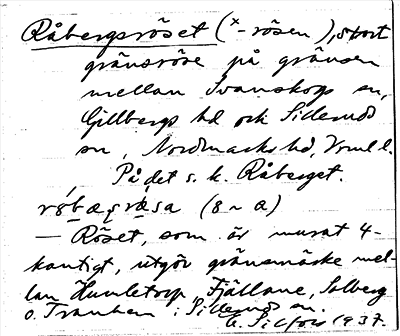 Råbergsröset (x-rösen), stort
gränsröse på gränsen
mellan Svanskogs sn,
Gillbergs hd och Sillerud
sn, Nordmarks hd, Vrml l.
På det s. k. Råberget.
(8 ~ a)
— Röset, som är murat 4-
kantigt, utgör gränsmärke mel-
lan Humletorp, Fjällane, Solberg
o. Tranhem i Sillerud sn.
1937.